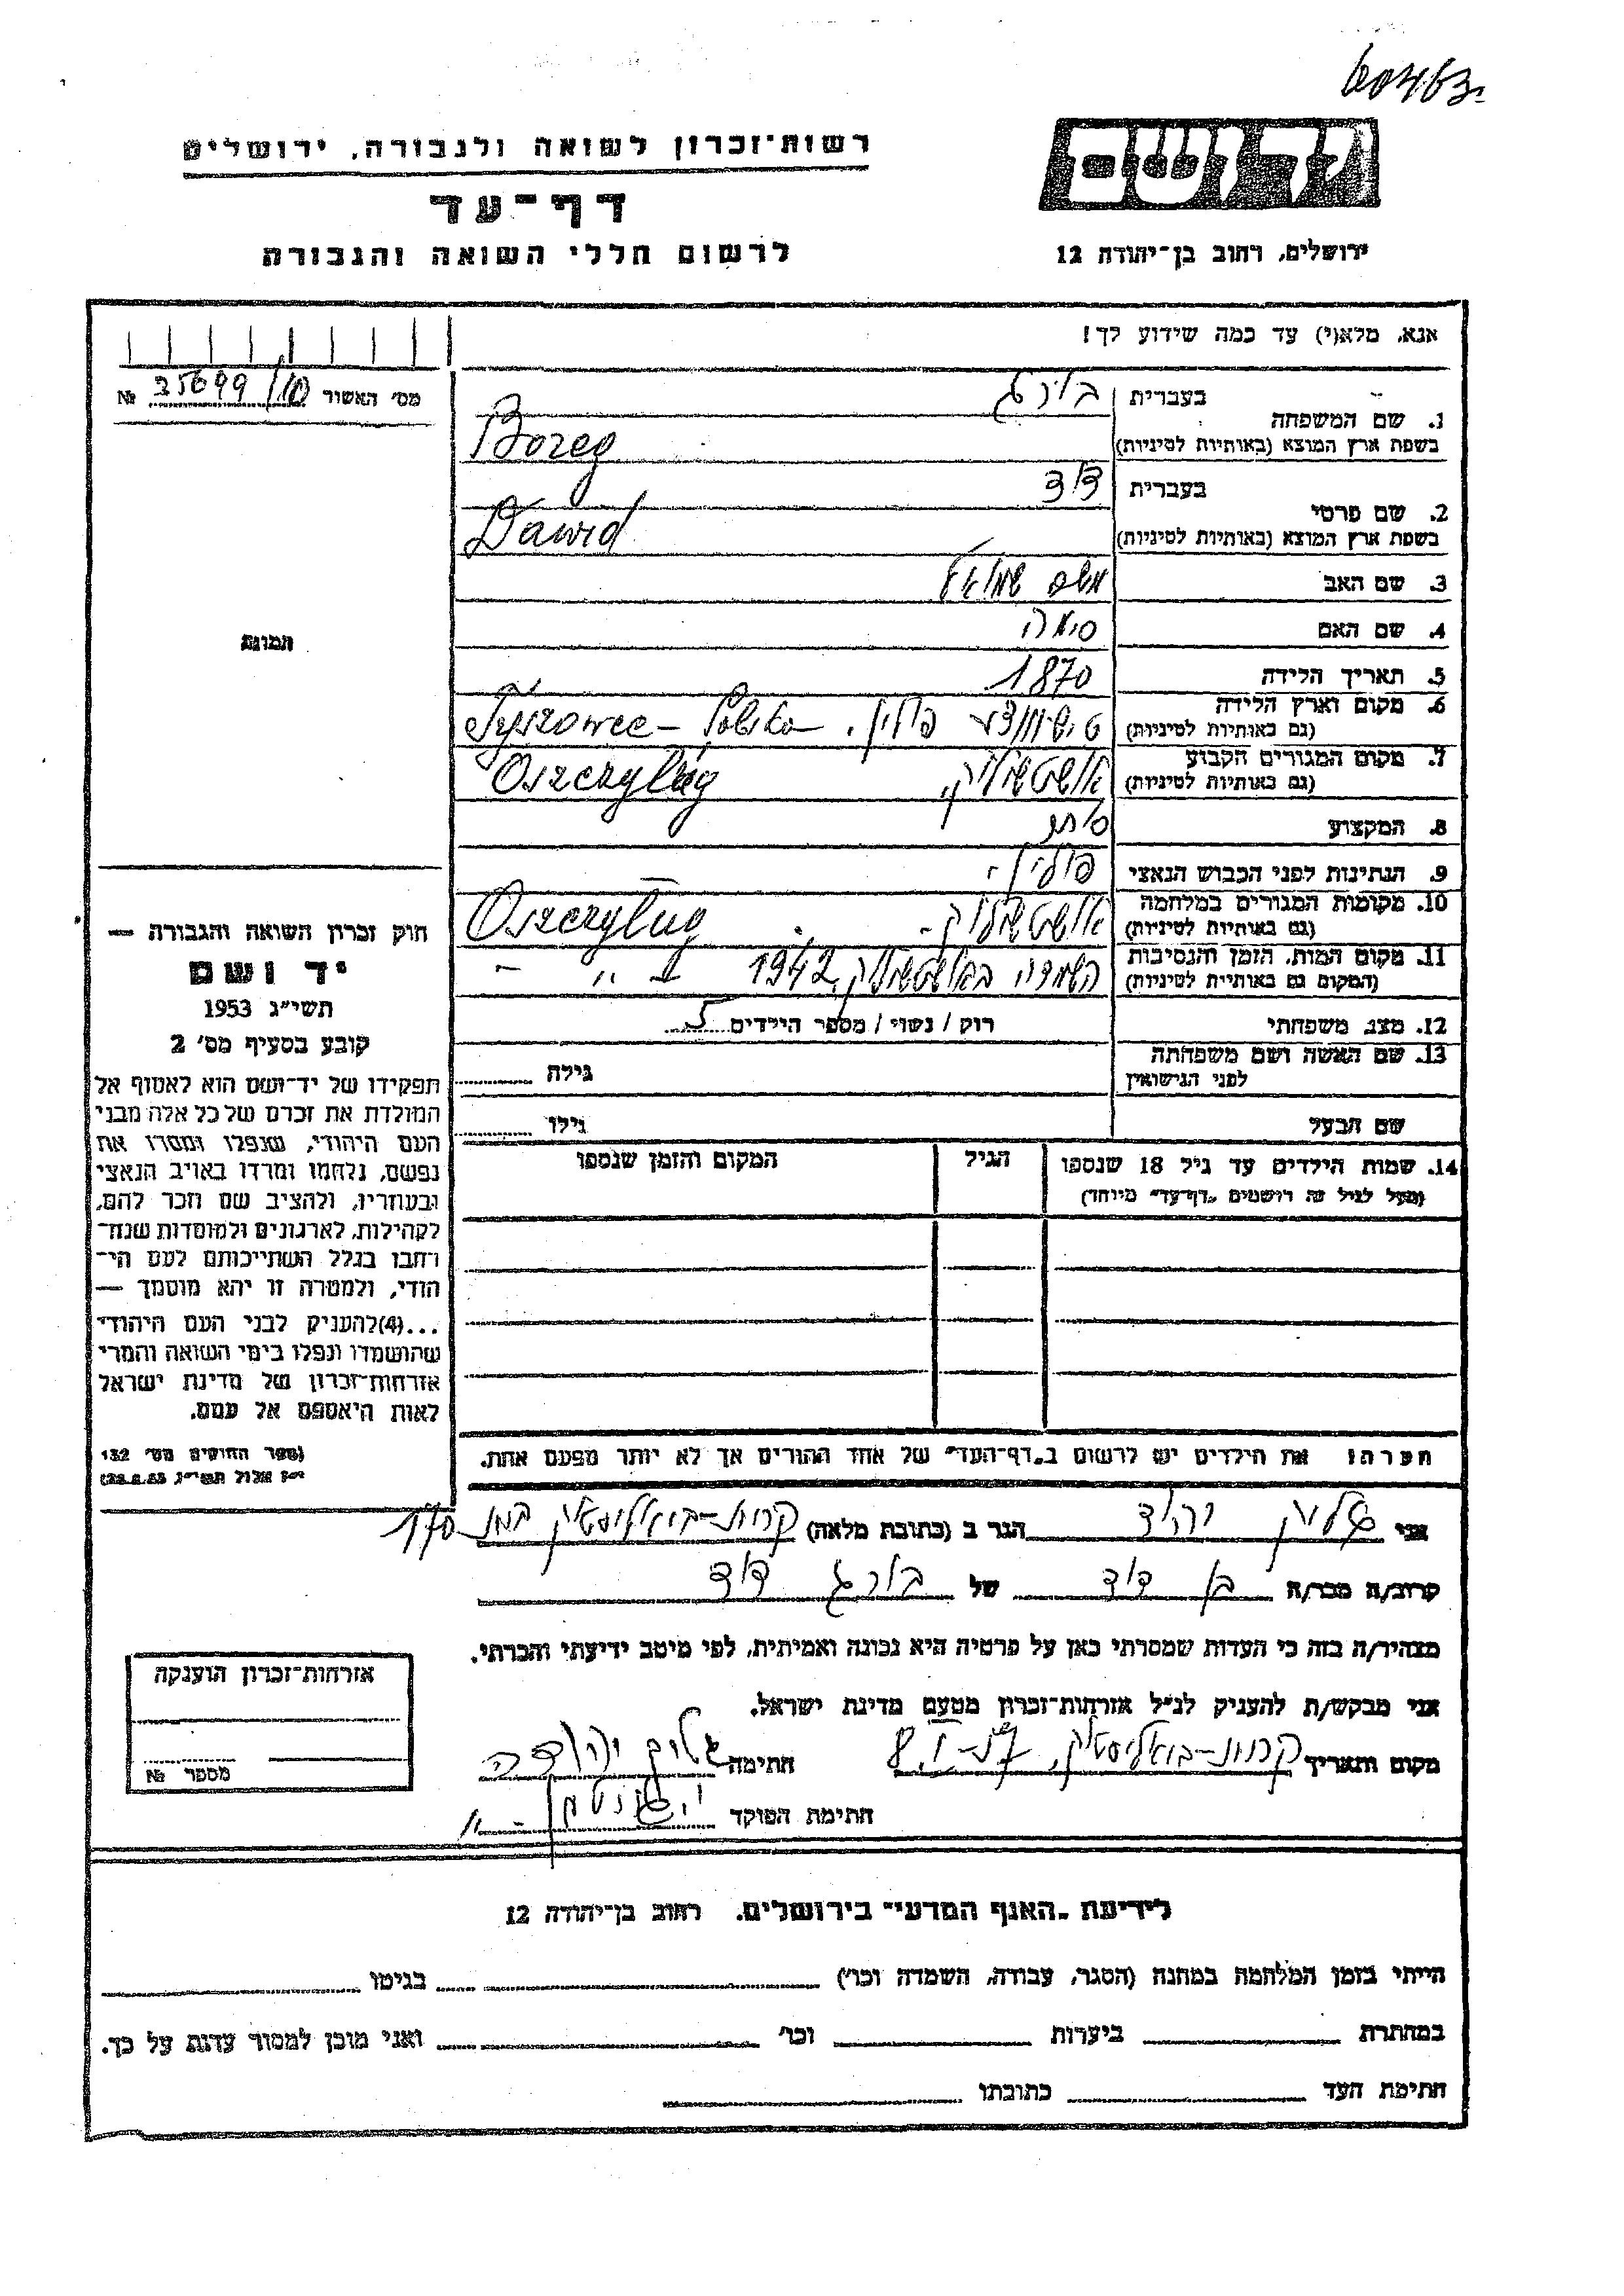 רשות־זכרון לשואה ולגבורה, ירושלים
דף־עד
לרשום חללי השואה והגבורה
ירושלים, רחוב בן־יהודה 12
אנא, מלא(י) עד כמה שידוע לך!
מס׳ האשור 35699/10 №
תמונה
בעברית בורג
1. שם המשפחה
בשפת ארץ המוצא (באותיות לטיניות) Boreg
בעברית דוד
2. שם פרטי
בשפת ארץ המוצא (באותיות לטיניות) Dawid
3. שם האב
4. שם האם
5. תאריך הלידה 1870
6. מקום וארץ הלידה
(גם באותיות לטיניות) פולין. Tyszowce - Polska
7. מקום המגורים הקבוע
(גם באותיות לטיניות)
8. המקצוע סוחר
9. הנתינות לפני הכבוש הנאצי פולין -
10. מקומות המגורים במלחמה
(גם באותיות לטיניות)
11. מקום המות, הזמן והנסיבות
(המקום גם באותיות לטיניות) 1942
12. מצב משפחתי רוק / נשוי / מספר הילדים 5
13. שם האשה ושם משפחתה
לפני הנישואין גילה
שם הבעל גילו
14. שמות הילדים עד גיל 18 שנספו הגיל המקום והזמן שנספו
(מעל לגיל זה רושמים „דף־עד״ מיוחד)
הערה: את הילדים יש לרשום ב„דף־העד״ של אחד ההורים אך לא יותר מפעם אחת.
חוק זכרון השואה והגבורה —
יד ושם
תשי״ג 1953
קובע בסעיף מס׳ 2
תפקידו של יד־ושם הוא לאסוף אל
המולדת את זכרם של כל אלה מבני
העם היהודי, שנפלו ומסרו את
נפשם, נלחמו ומרדו באויב הנאצי
ובעוזריו, ולהציב שם וזכר להם,
לקהילות, לארגונים ולמוסדות שנח־
רבו בגלל השתייכותם לעם הי־
הודי, ולמטרה זו יהא מוסמך —
...(4)להעניק לבני העם היהודי
שהושמדו ונפלו בימי השואה והמרי
אזרחות־זכרון של מדינת ישראל
לאות היאספם אל עמם.
(ספר החוקים מס׳ 132
י״ז אלול תשי״ג, 28.8.53)
אני יהודה הגר ב (כתובת מלאה) קרית-ביאליסטוק 170
קרוב/ה מכר/ה בן דוד של בורג דוד
מצהיר/ה בזה כי העדות שמסרתי כאן על פרטיה היא נכונה ואמיתית, לפי מיטב ידיעתי והכרתי.
אני מבקש/ת להעניק לנ״ל אזרחות־זכרון מטעם מדינת ישראל.
מקום ותאריך קרית-ביאליסטוק, חתימה יהודה
חתימת הפוקד
אזרחות־זכרון הוענקה
מספר №
לידיעת „האגף המדעי״ בירושלים. רחוב בן־יהודה 12
הייתי בזמן המלחמה במחנה (הסגר, עבודה, השמדה וכו׳) בגיטו
במחתרת ביערות וכו׳ ואני מוכן למסור עדות על כך.
חתימת העד כתובתו